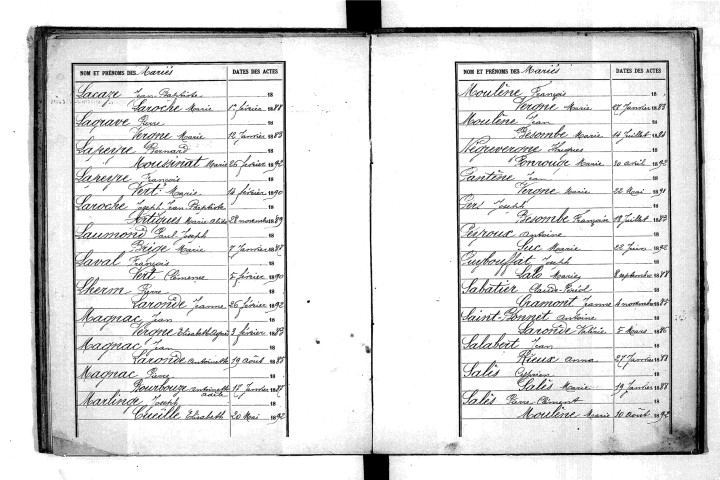 NOM ET PRÉNOMS DES Mariés DATES DES ACTES
Lacaze Jean Baptiste 18
Laroche Marie 1er février 1888
Lagrave Pierre 18
Vergne Marie 12 Janvier 1883
Lapeyre Bernard 18
Moussinat Marie 25 février 1892
Lapeyre François 18
Vert Marie 14 février 1890
Laroche Joseph Jean Baptiste 18
Artigues Marie 28 novembre 1889
Laumond Paul Joseph 18
Brige Marie 7 Janvier 1888
Laval François 18
Vert Clémence 5 février 1890
Lherm Pierre 18
Laronde Jeanne 26 février 1892
Magnac Jean 18
Vergne Elisabeth 3 février 1883
Magnac Jean 18
Laronde Antoinette 19 août 1885
Magnac Pierre 18
Bourbouze Antoinette 17 Janvier 1887
Marlinge Joseph 18
Cueille Elisabeth 20 Mai 1892
NOM ET PRÉNOMS DES Mariés DATES DES ACTES
Moulène François 18
Vergne Marie 27 Janvier 1883
Moulène Jean 18
Besombe Marie 14 Juillet 1881
Nègrevergne Hugues 18
Ponrouge Marie 30 avril 1892
Pantène Jean 18
Vergne Marie 22 Mai 1891
Pers Joseph 18
Besombe Françoise 18 Juillet 1883
Peyroux Antoine 18
Suc Marie 22 Juin 1892
Puybouffat Joseph 18
Marie 8 septembre 1888
Sabatier Claude 18
Gramont Jeanne 4 novembre 1885
Saint-Bonnet Antoine 18
Laronde Valérie 5 Mars 1886
Salabert Jean 18
Rieux Anna 27 Janvier 1888
Salès Cyprien 18
Salès Marie 19 Janvier 1888
Salès Pierre Clément 18
Moulène Marie 10 août 1892